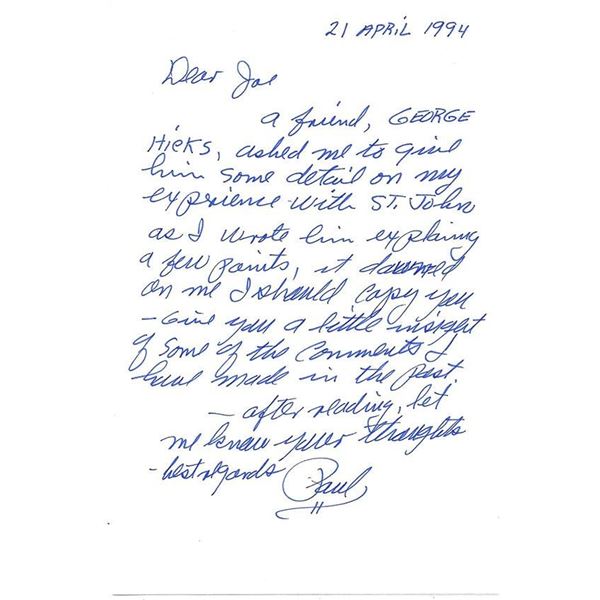 21 APRIL 1994
Dear Joe
a friend, GEORGE
HICKS, asked me to give
him some detail on my
experience with ST. John
as I wrote him explaing
a few points, it dawned
on me I should copy you
- Give you a little insight
of some of the comments I
have made in the past.
- after reading, let
me know your thoughts
- best regards Paul